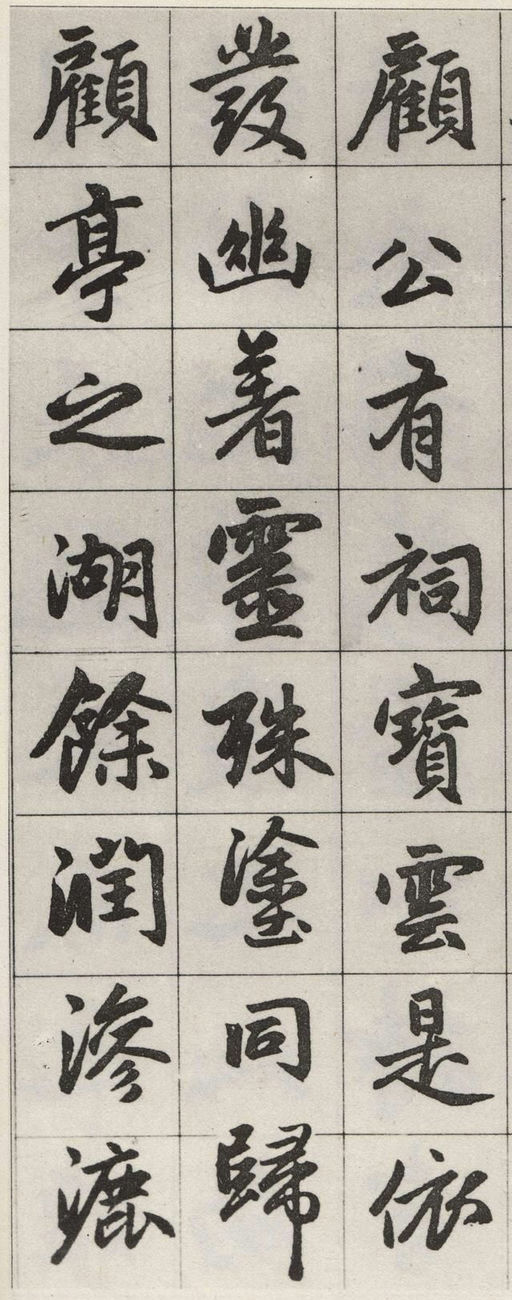 顧公有祠寶雲是依
發幽著靈殊塗同歸
顧亭之湖餘潤滲漉